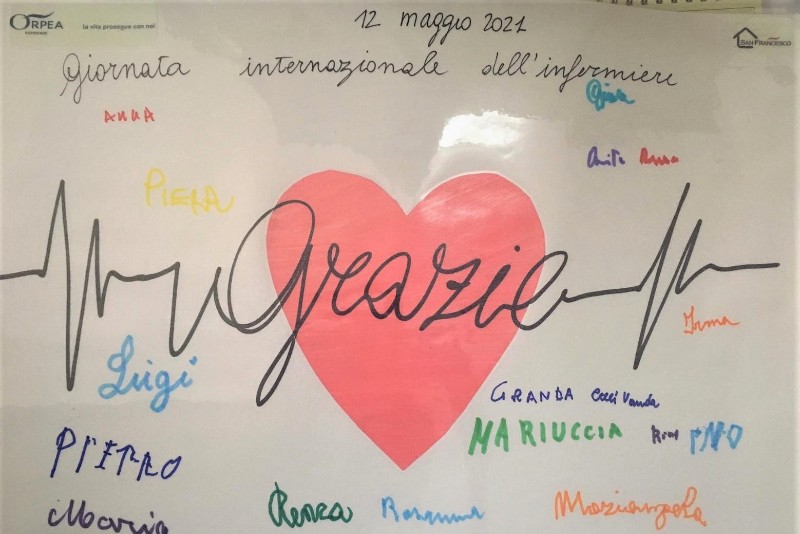 ORPEA
la vita prosegue con noi
12 maggio 2021
SAN FRANCESCO
Giornata internazionale dell'infermiere
Gisa
ANNA
Anita Anna
PIERA
Grazie
Irma
Luigi
GRANDA Celi Vanda
MARIUCCIA PINO
PIETRO
Maria
Renza
Rosanna
Mariangela